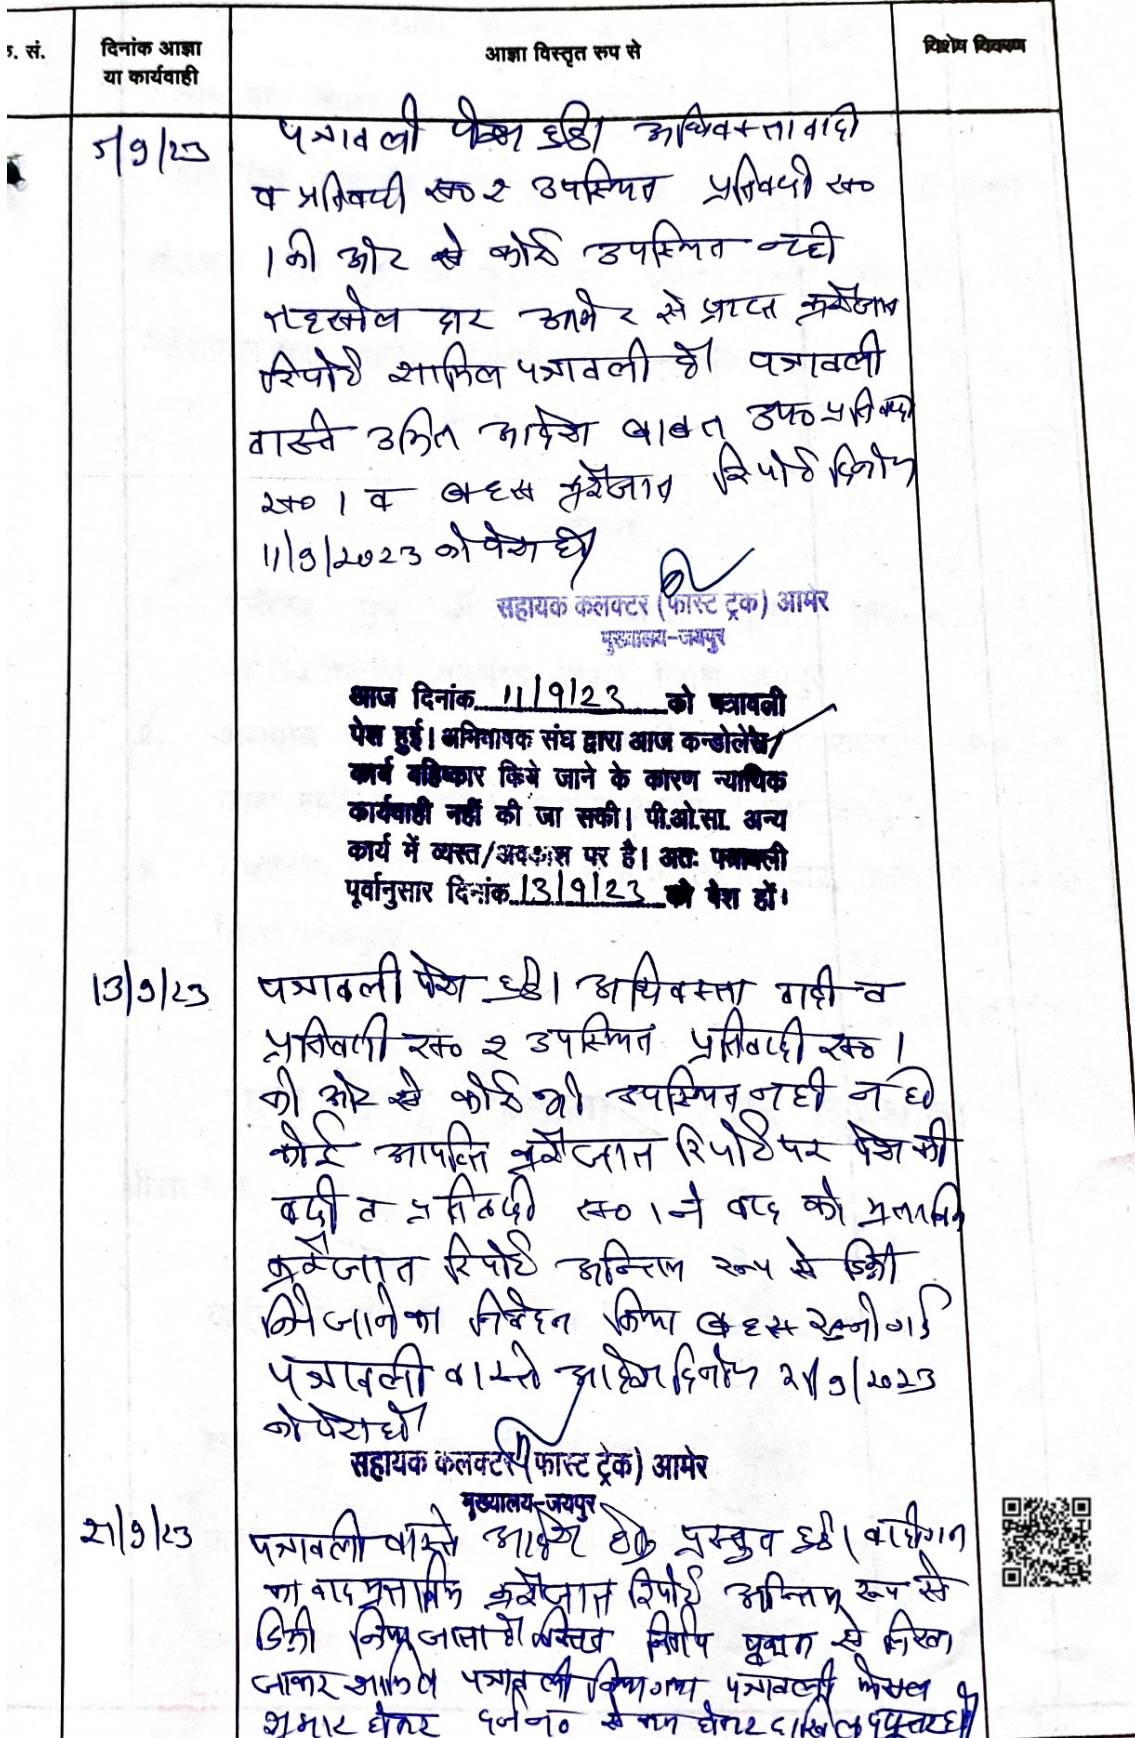 क. सं.
दिनांक आज्ञा
या कार्यवाही
आज्ञा विस्तृत रूप से
विशेष विवरण
5/9/23
पत्रावली पेश हुई। अधिवक्ता वादी
व प्रतिवादी सं० २ उपस्थित प्रतिवादी सं०
1 की ओर से कोई उपस्थित नही
तहसीलदार आमेर से प्राप्त कुर्रेजात
रिपोर्ट शामिल पत्रावली है। पत्रावली
वास्ते उचित आदेश बाबत उप० प्रतिवादी
सं० 1 व बहस कुर्रेजात रिपोर्ट दिनांक
11/9/2023 को पेश हो
सहायक कलक्टर (फास्ट ट्रक) आमेर
मुख्यालय-जयपुर
आज दिनांक 11/9/23 को पत्रावली
पेश हुई। अभिभाषक संघ द्वारा आज कन्डोलेंस/
कार्य बहिष्कार किये जाने के कारण न्यायिक
कार्यवाही नहीं की जा सकी। पी.ओ.सा. अन्य
कार्य में व्यस्त/अवकाश पर है। अतः पत्रावली
पूर्वानुसार दिनांक 13/9/23 को पेश हों।
13/9/23
पत्रावली पेश हुई। अधिवक्ता वादी व
प्रतिवादी सं० २ उपस्थित प्रतिवादी सं० 1
की ओर से कोई भी उपस्थित नही न ही
कोई आपत्ति कुर्रेजात रिपोर्ट पर पेश की
वादी व प्रतिवादी सं० 1 ने वाद को मुताबिक
कुर्रेजात रिपोर्ट अन्तिम रूप से डिक्री
किये जाने का निवेदन किया बहस सुनी गई
पत्रावली वास्ते आदेश दिनांक 21/9/2023
को पेश हो
सहायक कलक्टर (फास्ट ट्रेक) आमेर
मुख्यालय-जयपुर
21/9/23
पत्रावली वास्ते आदेश हेतु प्रस्तुत हुई। वादीगन
का वाद मुताबिक कुर्रेजात रिपोर्ट अन्तिम रूप से
डिक्री किया जाता है। विस्तृत निर्णय पृथक से लिखा
जाकर शामिल पत्रावली किया गया पत्रावली फैसल
शुमार होकर दर्ज नं० से कम होकर दाखिल दफ्तर हो